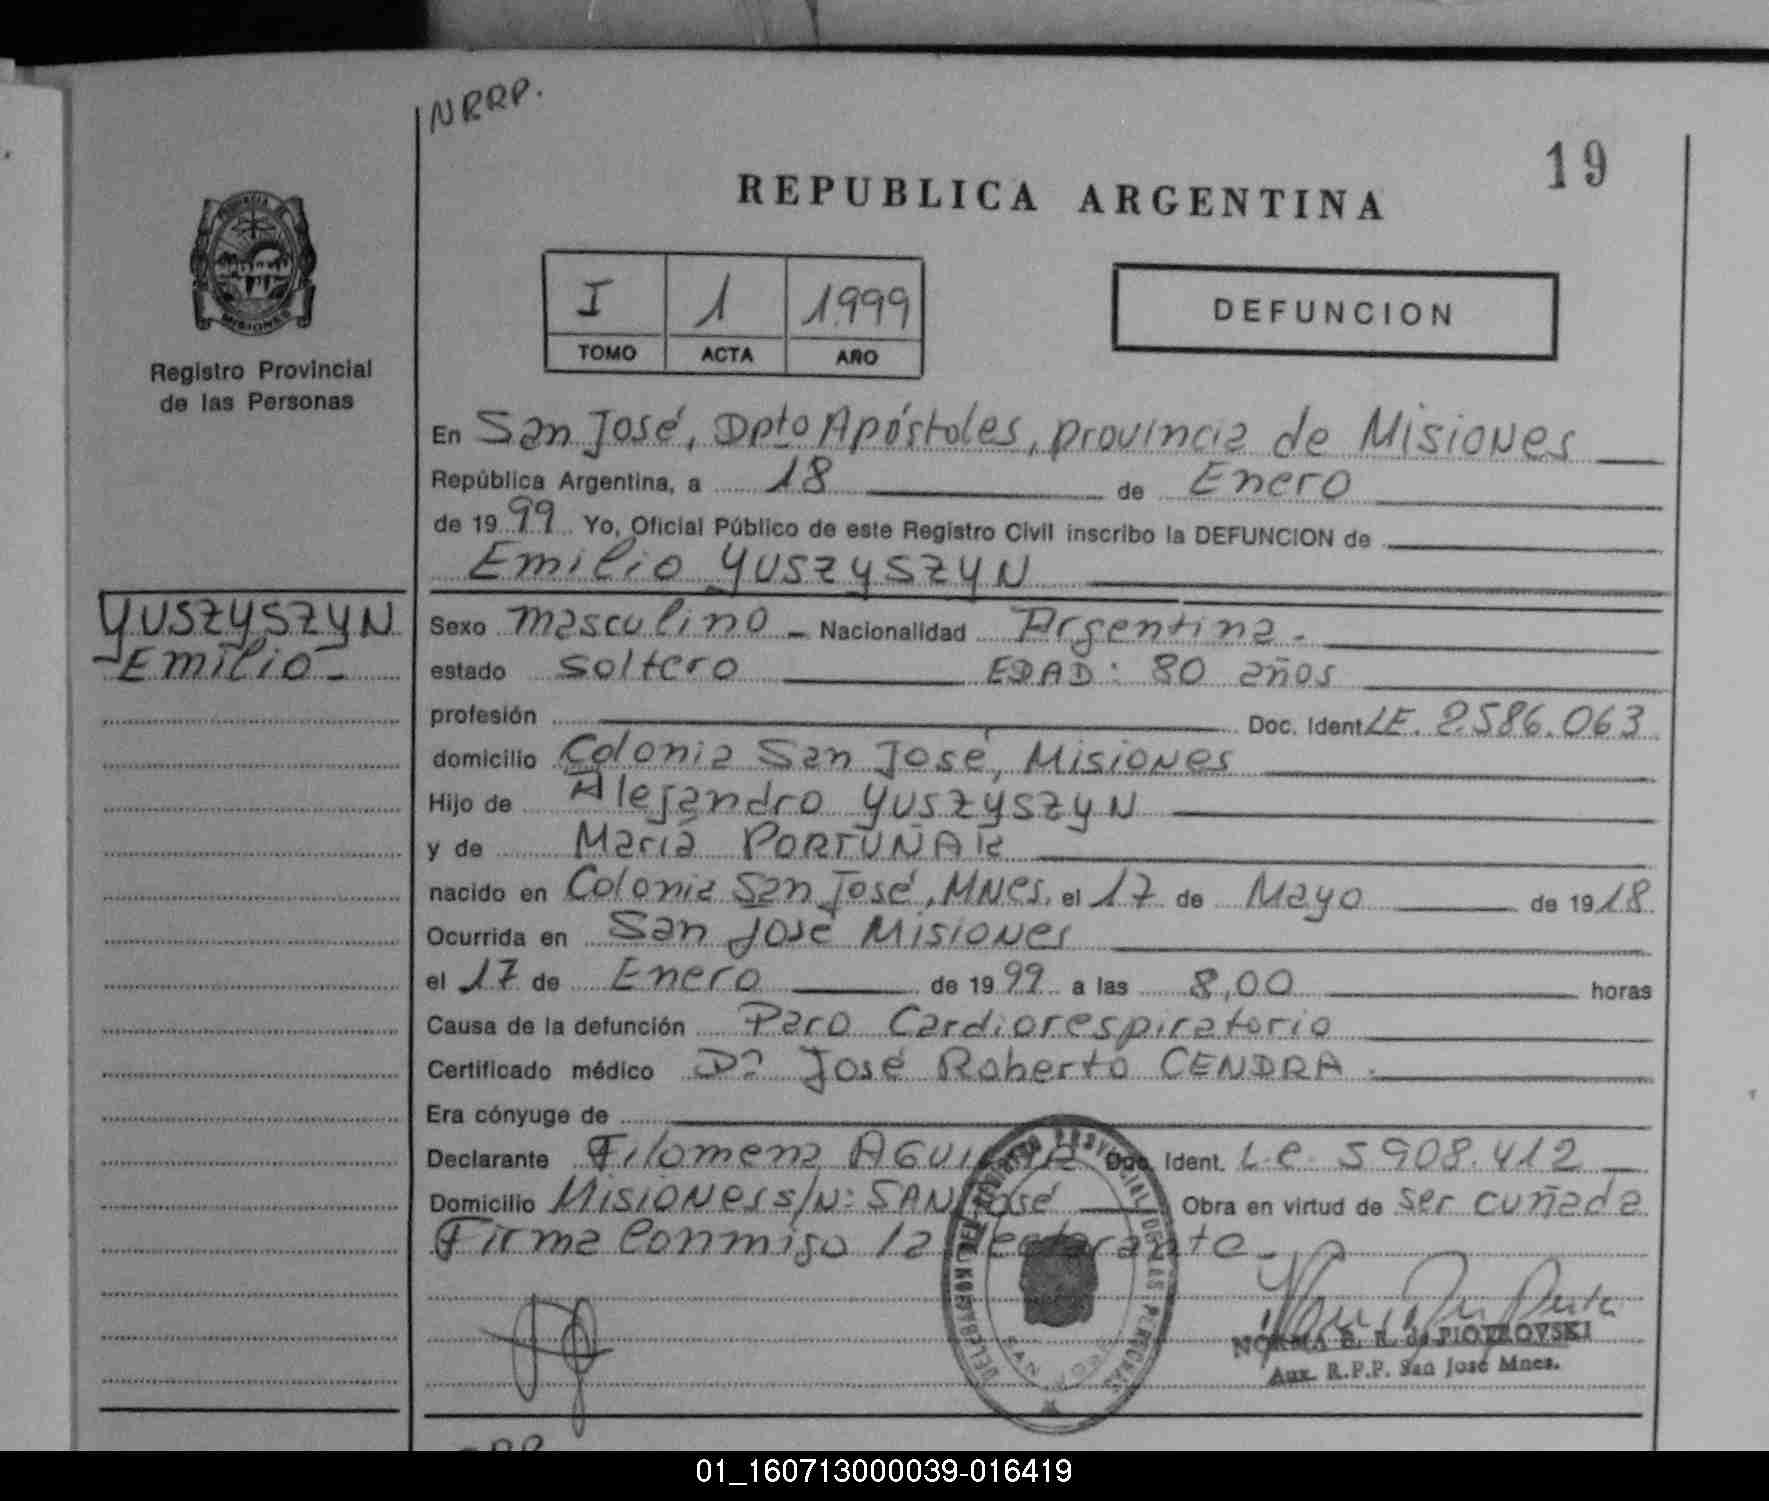 NRRP.
19
REPUBLICA ARGENTINA
I 1 1.999
TOMO ACTA AÑO
DEFUNCION
PROVINCIA DE
MISIONES
Registro Provincial
de las Personas
En San José, Dpto Apóstoles, provincia de Misiones
República Argentina, a 18 de Enero
de 1999 Yo, Oficial Público de este Registro Civil inscribo la DEFUNCION de
Emilio YUSZYSZYN
YUSZYSZYN
-Emilio-
Sexo masculino - Nacionalidad Argentina.-
estado soltero EDAD: 80 años
profesión Doc. Ident LE. 2.586.063
domicilio Colonia San José, Misiones
Hijo de Alejandro YUSZYSZYN
y de María PORTUÑAK
nacido en Colonia San José, MNes. el 17 de Mayo de 1918
Ocurrida en San José Misiones
el 17 de Enero de 1999 a las 8,00 horas
Causa de la defunción Paro Cardiorespiratorio
Certificado médico Dr José Roberto CENDRA.
Era cónyuge de
Declarante Filomena Doc. Ident. L.C. 5.908.412
Domicilio Misiones s/N: SAN José Obra en virtud de ser cuñada
Firma Conmigo la declarante.-
SAN JOSE
NORMA B. R. de PIOTROVSKI
Aux. R.P.P. San José Mnes.
01_160713000039-016419